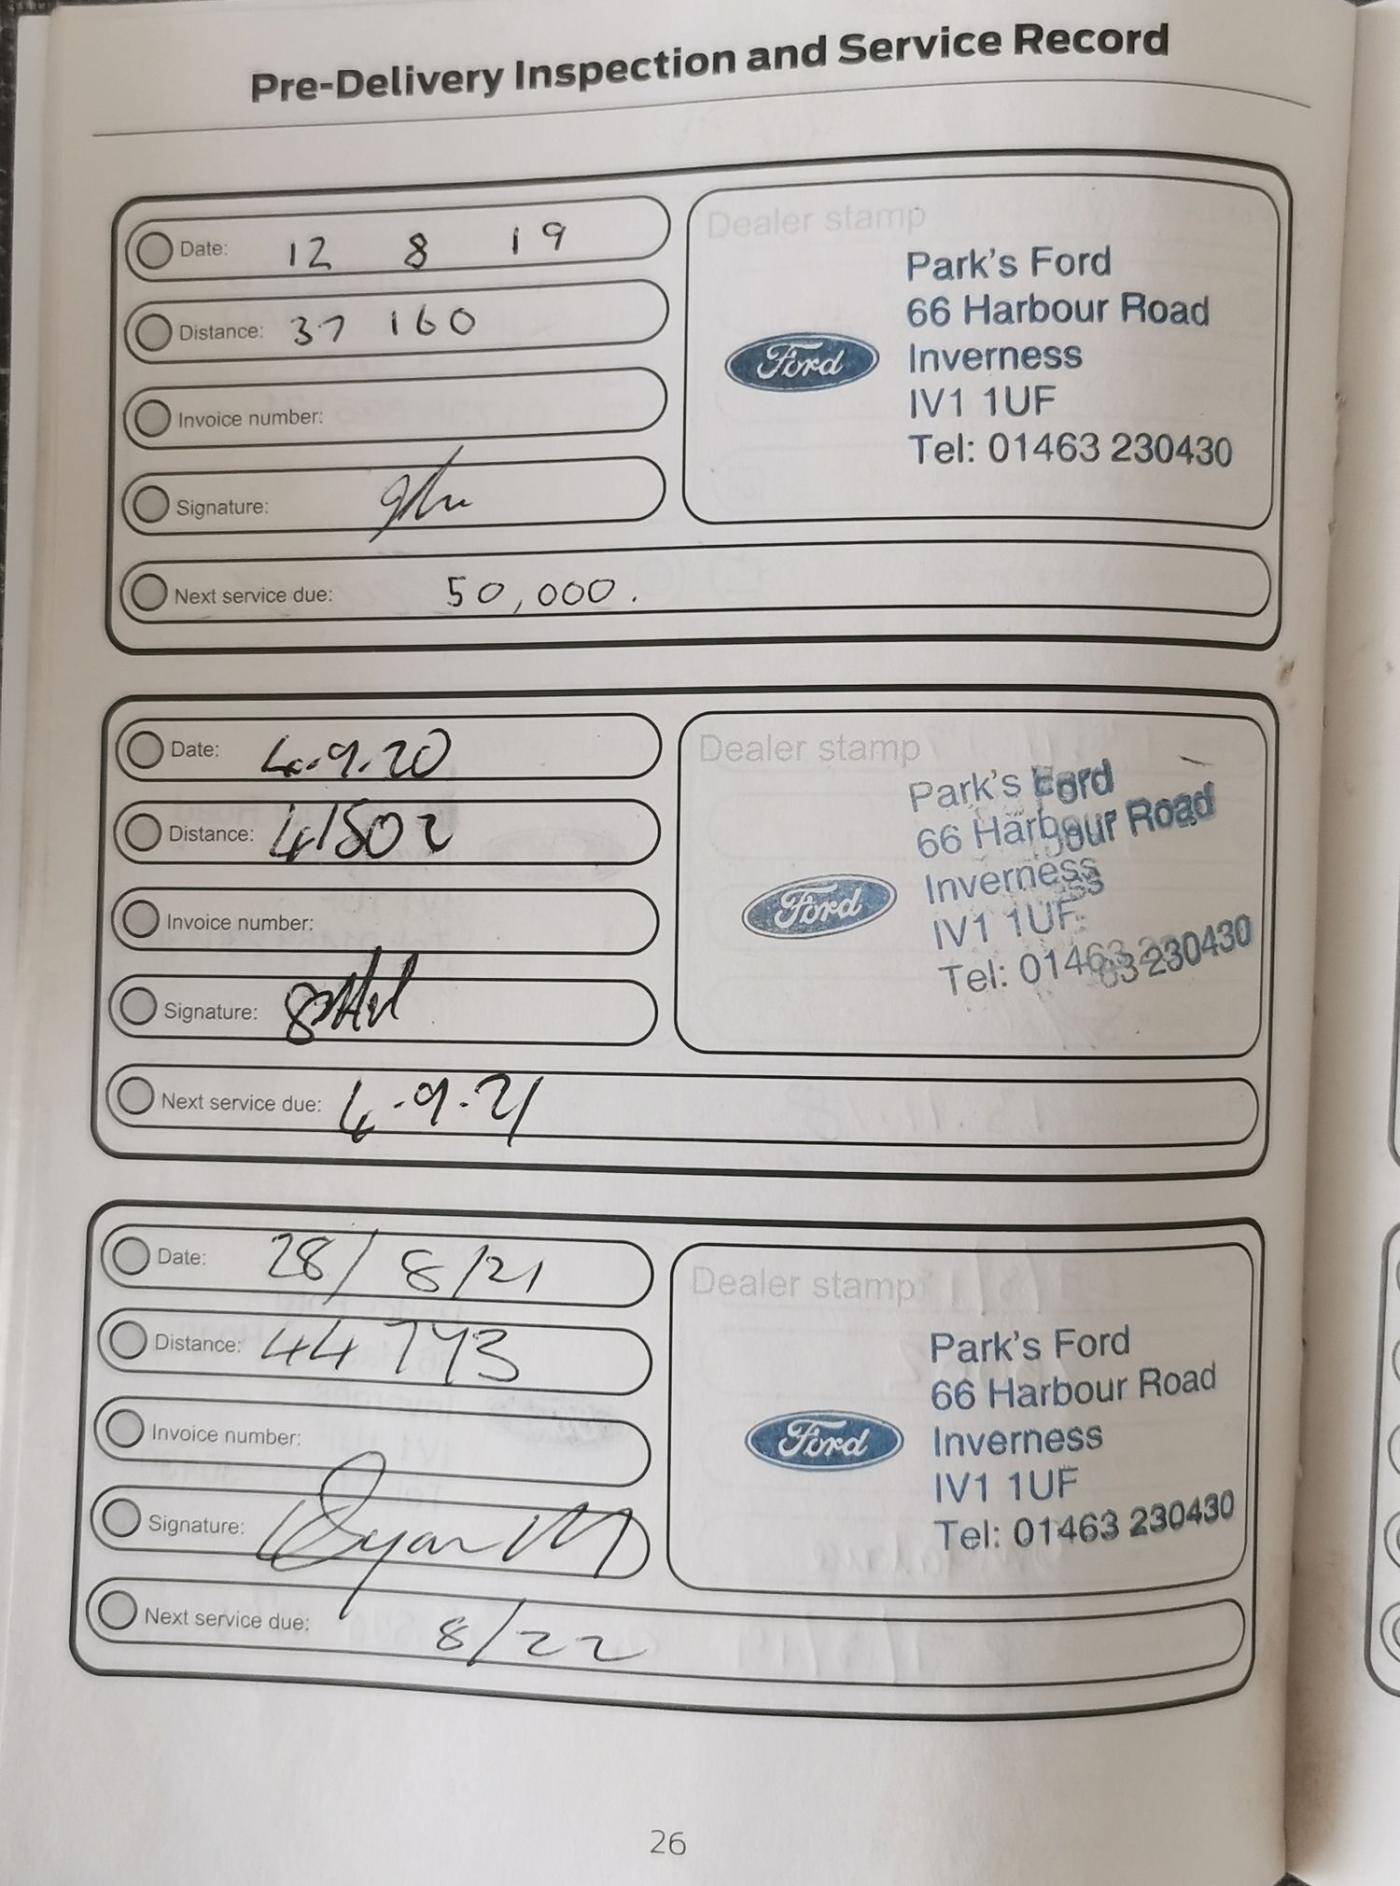 Pre-Delivery Inspection and Service Record
Date: 12 8 19
Distance: 37 160
Invoice number:
Signature:
Next service due: 50,000.
Dealer stamp
Ford
Park's Ford
66 Harbour Road
Inverness
IV1 1UF
Tel: 01463 230430
Date: 4.9.20
Distance: 41502
Invoice number:
Signature:
Next service due: 4.9.21
Dealer stamp
Ford
Park's Ford
66 Harbour Road
Inverness
IV1 1UF
Tel: 01463 230430
Date: 28/8/21
Distance: 44 793
Invoice number:
Signature: Ryan M
Next service due: 8/22
Dealer stamp
Ford
Park's Ford
66 Harbour Road
Inverness
IV1 1UF
Tel: 01463 230430
26